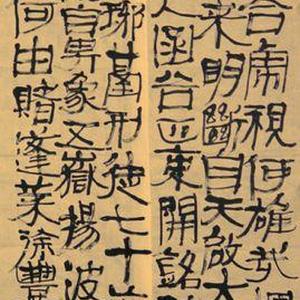 合虎視何雄哉
来明斷自天啟大
人函谷正東開銘
琊臺刑徒七十
鼻象五嶽揚波
何由睹蓬莱徐